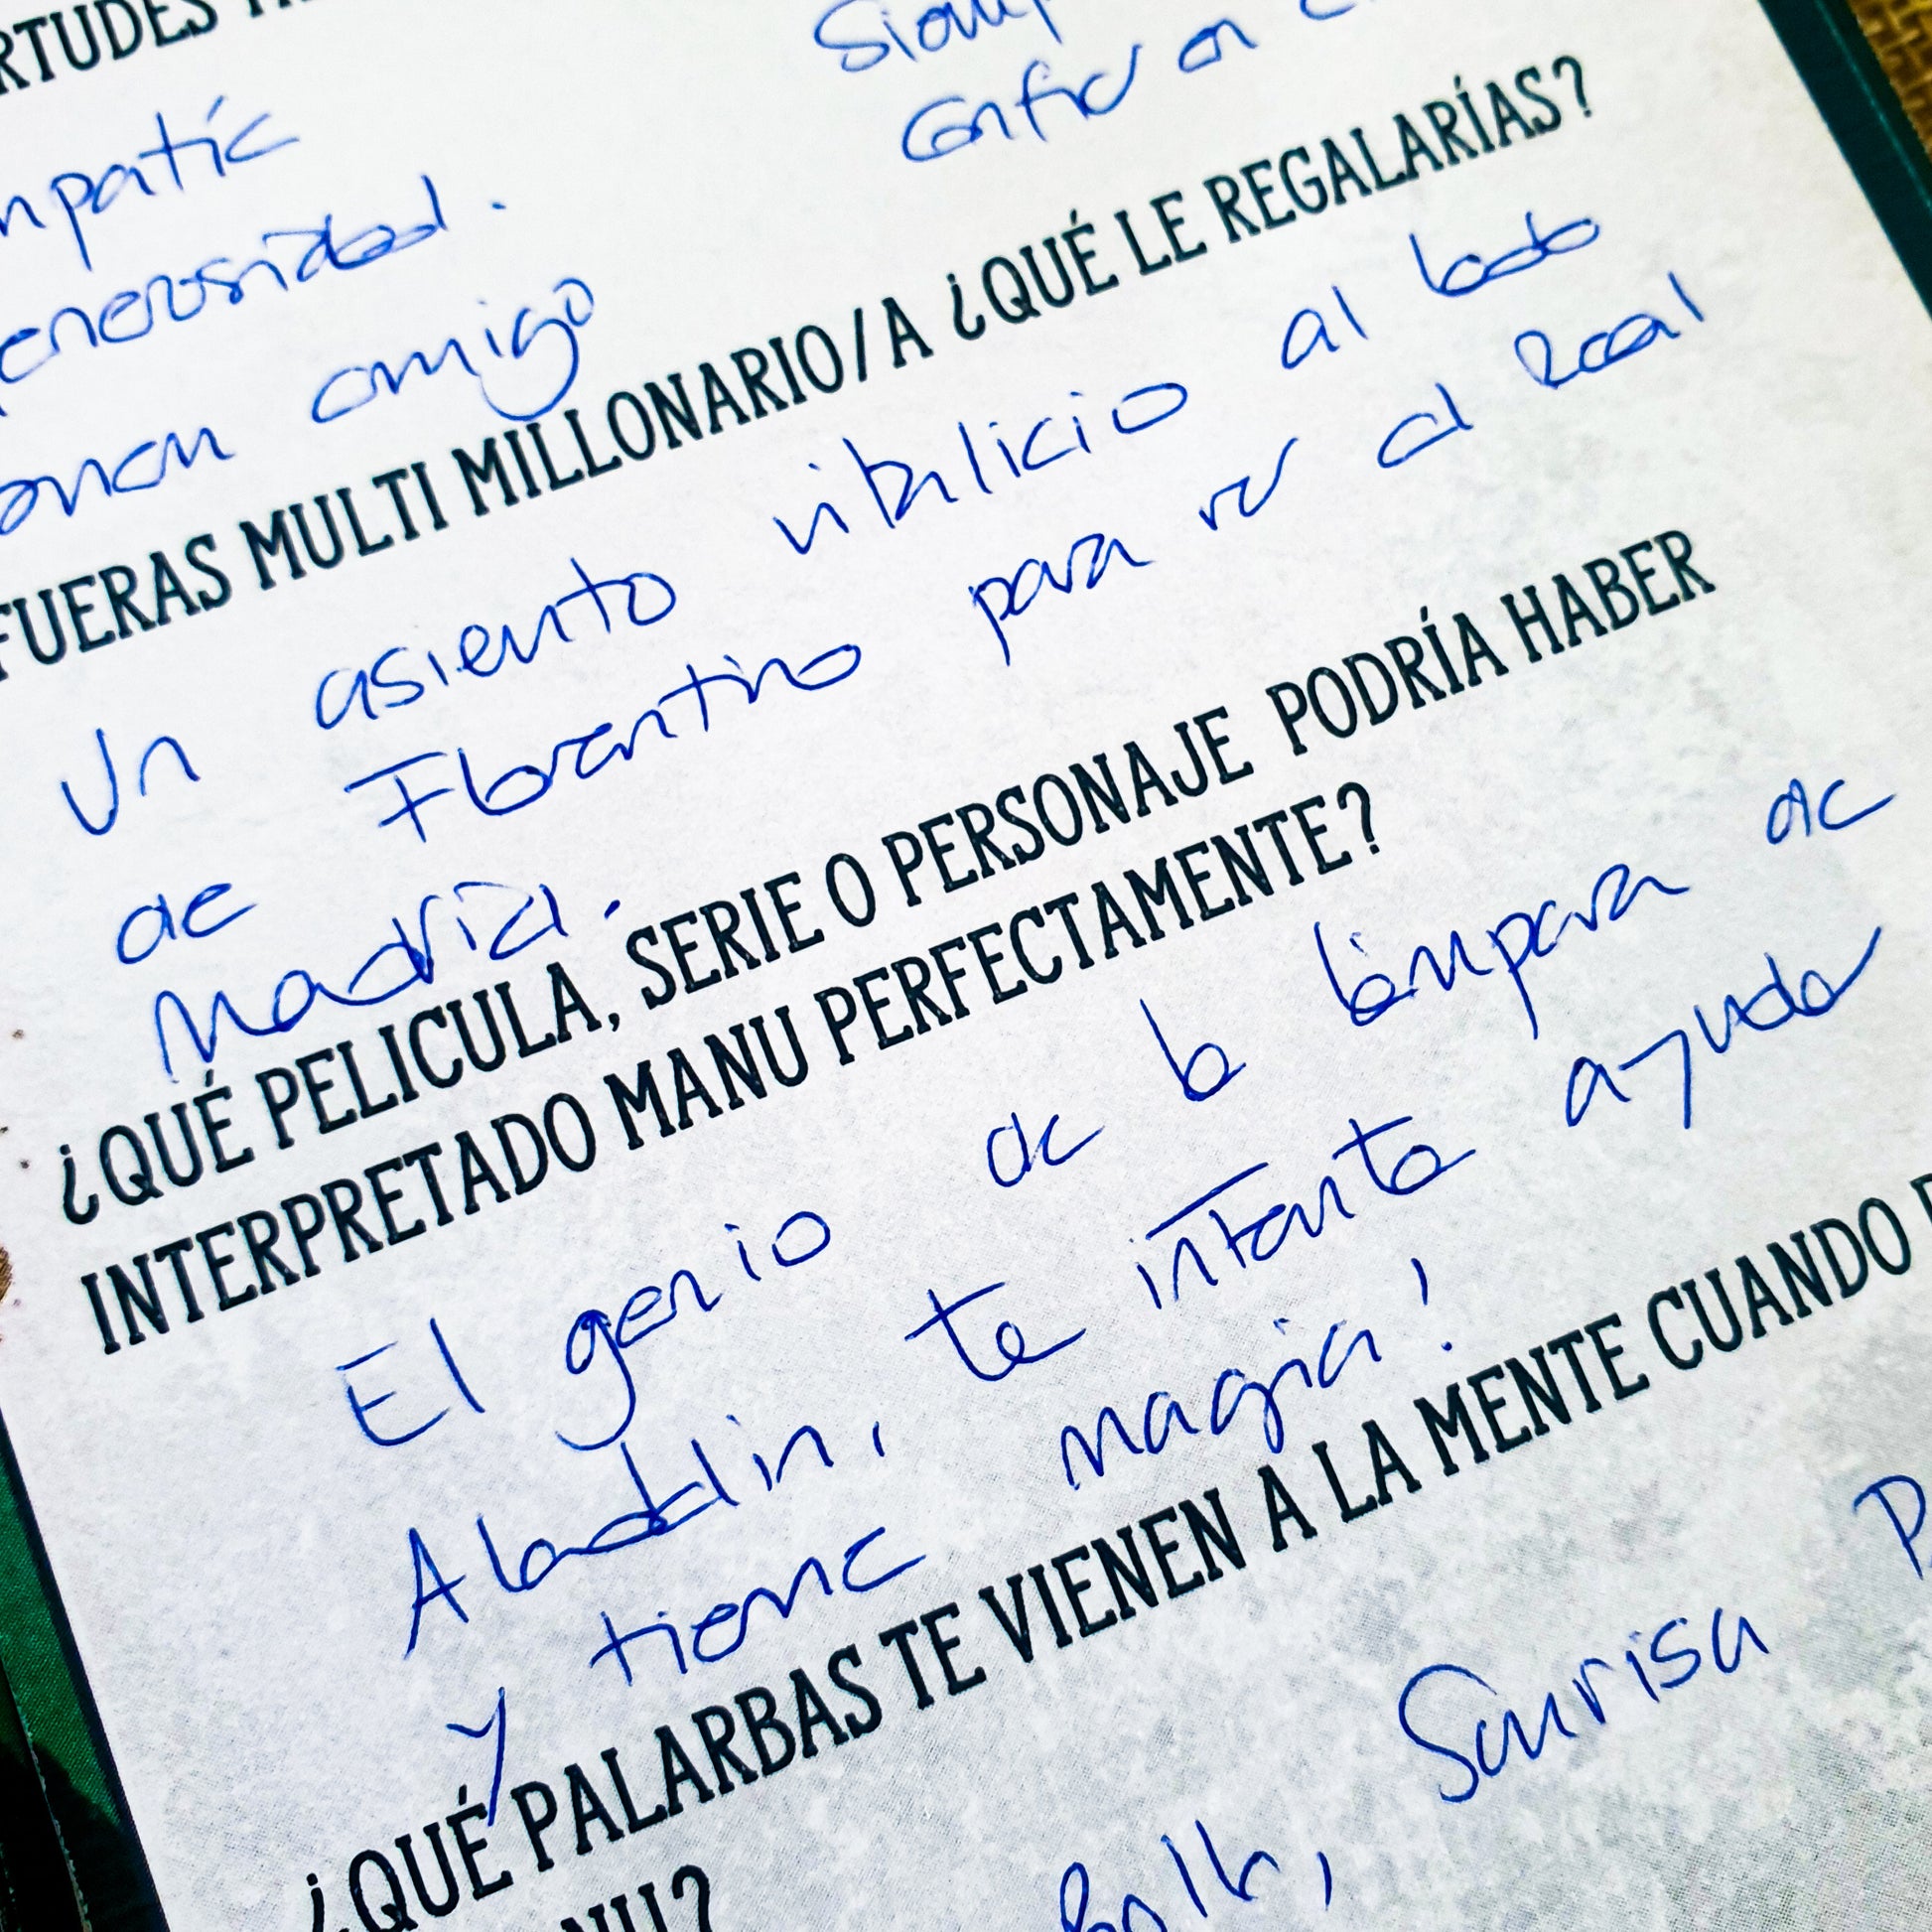 RTUDES
Siemp
confiar en
mpatía
enerosidad.
amigo
FUERAS MULTI MILLONARIO/A ¿QUÉ LE REGALARÍAS?
Un asiento vitalicio al lado
de Florentino para ver al Real
Madrid.
¿QUÉ PELICULA, SERIE O PERSONAJE PODRÍA HABER
INTERPRETADO MANU PERFECTAMENTE?
El genio de la lámpara de
Aladdin, te intenta ayudar
y tiene magia!
¿QUÉ PALARBAS TE VIENEN A LA MENTE CUANDO
NU?
Sonrisa